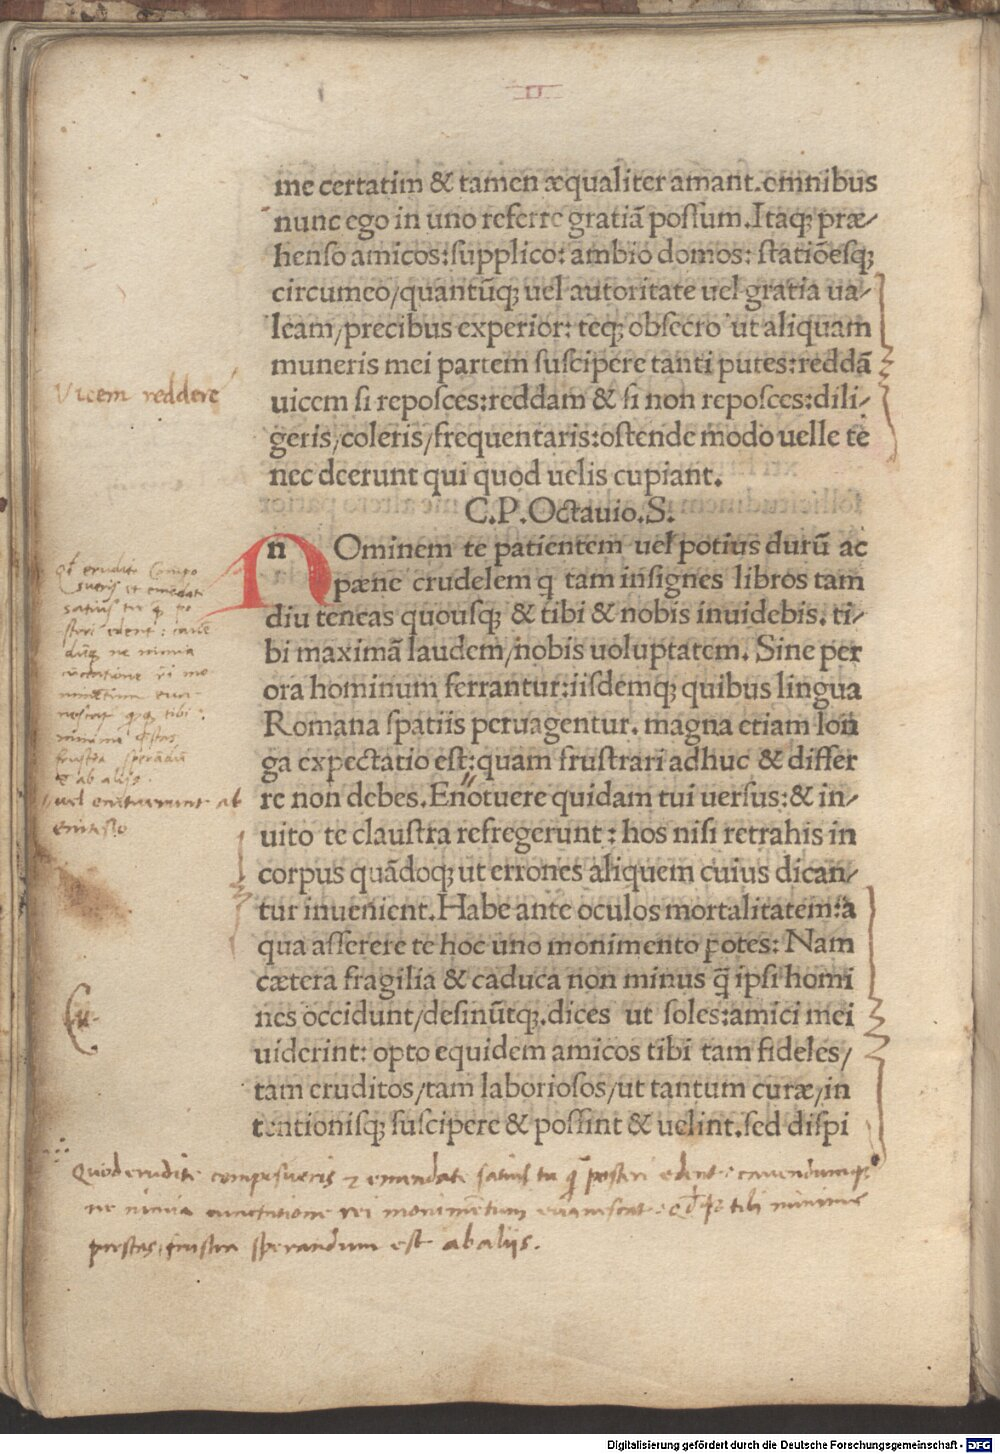 II
me certatim & tamen æqualiter amant.omnibus
nunc ego in uno referre gratiā possum.Itaqꝫ præ/
henso amicos:supplico: ambio domos: statiōesqꝫ
circumeo/quantūqꝫ uel autoritate uel gratia ua/
leam/precibus experior: teqꝫ obsecro ut aliquam
muneris mei partem suscipere tanti putes:reddā
uicem si reposces:reddam & si non reposces:dili/
geris/coleris/frequentaris:ostende modo uelle te
nec deerunt qui quod uelis cupiant.
Vicem reddere
C.P.Octauio.S.
n Ominem te patientem uel potius durū ac
pæne crudelem q tam insignes libros tam
diu teneas quousqꝫ & tibi & nobis inuidebis. ti/
bi maximā laudem/nobis uoluptatem. Sine per
ora hominum ferrantur:iisdemqꝫ quibus lingua
Romana spatiis peruagentur. magna etiam lon
ga expectatio est:quam frustrari adhuc & differ
re non debes.Enotuere quidam tui uersus:& in/
uito te claustra refregerunt : hos nisi retrahis in
corpus quādoqꝫ ut errones aliquem cuius dican/
tur inuenient.Habe ante oculos mortalitatem:a
qua asserere te hoc uno monimento potes: Nam
cætera fragilia & caduca non minus q̄ ipsi homi
nes occidunt/desinūtqꝫ.dices ut soles:amici mei
uiderint: opto equidem amicos tibi tam fideles/
tam eruditos/tam laboriosos/ut tantum curæ/in
tentionisqꝫ suscipere & possint & uelint.sed dispi
erudite Compo
sueris et emēdate
satius tu q̄ po
steri edent : caue
dūqꝫ ne nimia
rei mo
tibi
frustra sperādū
ē ab aliis.
uel enituerunt ab
enitesco
Quod erudite composueris & emendate satius tu q̄ posteri edent : cauendumqꝫ
ne nimia cunctatione rei monimentum euanescat : tibi minime
prestas, frustra sperandum est ab aliis.
Digitalisierung gefördert durch die Deutsche Forschungsgemeinschaft - DFG